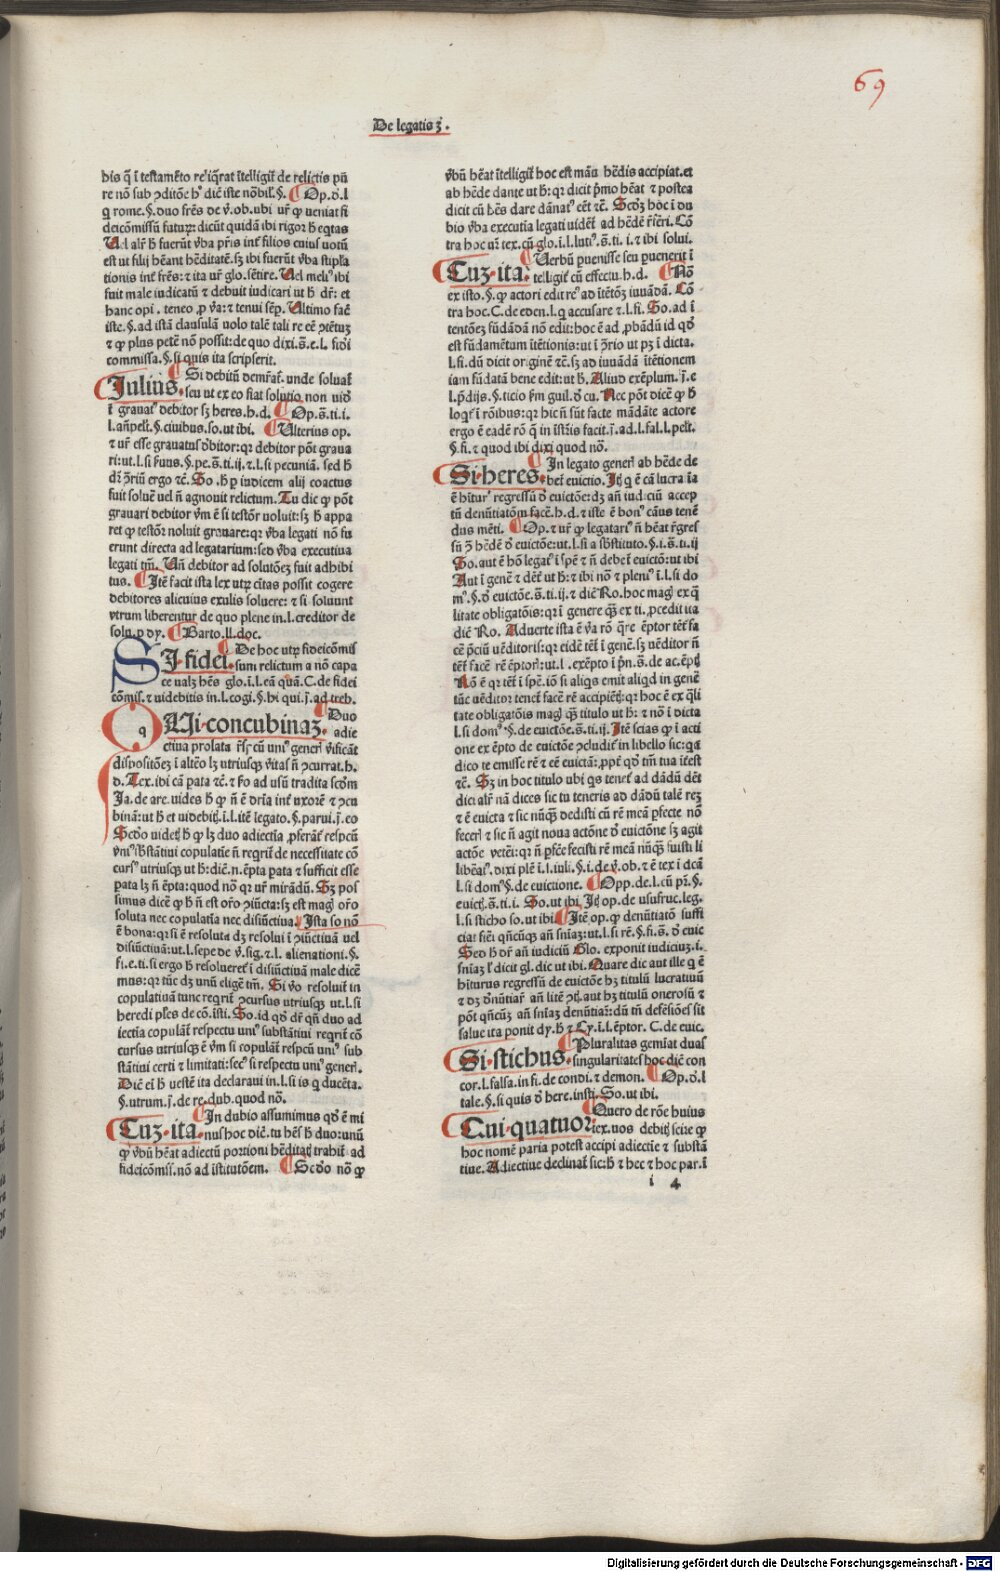 69
De legatis ʒ.
bis q̄ ĩ testamẽto req̃rat ĩtelligit̃ de relictis pũ
re nõ sub ꝯditõe hˢ dic̃ iste nobil̃.§. ¶ Op.d.l
q̄ rome.§. duo fr̃es de v̄.ob.ubi ur̃ ꝙ ueniat fi
deicõmissũ futuꝝ: dicũt quidã ibi rigor h̃ eq̃tas
Uel alr̃ h̃ fuerũt v̄ba pr̃is int̃ filios cuius uotũ
est ut filij hẽant hẽditatẽ.sʒ ibi fuerũt v̄ba stipla
tionis int̃ fr̃es: ⁊ ita ur̃ glo.sẽtire. Uel meliˢ ibi
fuit male iudicatũ ⁊ debuit iudicari ut h̃ dr̃: et
hanc opi. teneo ꝓ v̄a: ⁊ tenui sẽp. Ultimo fac̃
iste.§. ad istã clausulã uolo talẽ tali re eẽ ꝯtẽtuʒ
⁊ ꝙ plus petẽ nõ possit: de quo dixi.s̃.e.l. fidei
commissa.§. si quis ita scripserit.
Iulius. ¶ Si debitũ demr̃at̃. unde soluat̃
seu ut ex eo fiat solutio non uid̃
ĩ grauat̃ debitor sʒ heres.h.d. ¶ Op.s̃.ti.i.
l.añpelt̃.§. ciuibus.so.ut ibi. ¶ Ulterius op.
⁊ ur̃ esse grauatus d̃bitor: qr debitor põt graua
ri: ut.l.si seruus.§. pe.s̃.ti.ij.⁊.l.si pecuniã. sed h̃
dr̃ ꝯriũ ergo ⁊c̃. So.h̃ p iudicem alij coactus
fuit soluẽ uel ñ agnouit relictum. Tu dic ꝙ põt
grauari debitor v̄m ẽ si testõr uoluit: sʒ h̃ appa
ret ꝙ testõr noluit grauare: qr v̄ba legati nõ fu
erunt directa ad legatarium: sed v̄ba executiua
legati tm̃. Uñ debitor ad solutõeʒ fuit adhibi
tus. ¶ Itẽ facit ista lex utꝝ ciuitas possit cogere
debitores alicuius exulis soluere: ⁊ si soluunt
vtrum liberentur de quo plene in.l. creditor de
solu.p dy. ¶ Barto.ll.doc.
SI fidei. ¶ De hoc utꝝ fideicõmis
sum relictum a nõ capa
ce ualʒ hẽs glo.i.l.eã quã.C. de fidei
cõmis̃.⁊ uidebitis in.l. cogi.§. hi qui.j̃.ad treb.
q
QUi concubinaʒ. ¶ Duo
adie
ctiua prolata r̃sʒ cũ uniˢ gener̃ v̄ificãt
dispositõeʒ ĩ altẽo lʒ utriusqʒ v̄itas ñ ꝯcurrat.h.
d. Tex.ibi cã pata ⁊c̃.⁊ ꝓo ad usũ tradita scõm
Ja.de are.uides h̃ ꝙ ñ ẽ dr̃ia int̃ uxorẽ ⁊ ꝯcu
binã: ut h̃ et uidebitʒ.i.l.itẽ legato.§. parui.j̃.eo
Scđo uidetʒ h̃ ꝙ lʒ duo adiectia ꝓferãt̃ respcũ
vniˢ sb̃stãtiui copulatie ñ reqrit̃ de necessitate cõ
cursˢ utriusqʒ ut h̃: dic̃.n. ẽpta pata ⁊ sufficit esse
pata lʒ ñ ẽpta: quod nõ. qr ur̃ mirãdũ. Sʒ pos
simus dicẽ ꝙ h̃ ñ est or̃o ꝯiũcta: sʒ est magˢ or̃o
soluta nec copulatĩa nec disiũctiua. Ista so nõ
ẽ bona: qr si ẽ resoluta dʒ resolui ĩ ꝯiũctiuã uel
disiũctiuã: ut.l. sepe de v̄.sig.⁊.l. alienationi.§.
fi.e.ti. si ergo h̃ resolueret̃ ĩ disiũctiuã male dicẽ
mus: qr tũc dʒ unũ eligẽ tm̃. Si v̄o resoluit̃ in
copulatiuã tunc reqrit̃ ꝯcursus utriusqʒ ut.l.si
heredi pl̃es de cõ.isti. So.id qđ dr̃ qñ duo ad
iectia copulãt̃ respectu uniˢ substãtiui reqrit̃ cõ
cursus utriusqʒ ẽ v̄m si copulãt̃ respcũ uniˢ sub
stãtiui certi ⁊ limitati: secˢ si respectu uniˢ gener̃.
Dic̃ ei h̃ uestẽ ita declaraui in.l.si is q ducẽta.
§. utrum.j̃. de re.dub. quod nõ.
Cuʒ ita. ¶ In dubio assumimus qđ ẽ mi
nus hoc dic̃. tu hẽs h̃ duo: unũ
ꝙ v̄bũ hẽat adiectũ portioni hẽditatʒ trahit̃ ad
fideicõmiss̃. nõ ad istitutõem. ¶ Scđo nõ ꝙ
v̄bũ hẽat ĩtelligit̃ hoc est mãu hẽdis accipiat. et
ab hẽde dante ut h̃: qr dicit pˢmo hẽat ⁊ postea
dicit cũ hẽs dare dãnatˢ eẽt ⁊c̃. Scđʒ hoc ĩ du
bio v̄ba executia legati uidẽt̃ ad hẽdẽ r̃feri. Cõ
tra hoc ur̃ tex. cũ glo.i.l.lutiˢ.s̃.ti.i.⁊ ibi solui.
Cuʒ ita. ¶ Uerbũ puenisse seu puenerit ĩ
telligit̃ cũ effectu.h.d. ¶ Nõ
ex isto.§. ꝙ actori edit̃ reˢ ad ĩtẽtõʒ iuuãdã. Cõ
tra hoc.C. de eden.l.q accusare ⁊.l.fi. So.ad ĩ
tentõeʒ fũdãdã nõ edit: hoc ẽ ad ꝓbãdũ id qđ
est fũdamẽtum ĩtẽtionis: ut ĩ ꝯrio ut pʒ ĩ dicta.
l.fi. dũ dicit originẽ ⁊c̃. sʒ ad iuuãdã ĩtẽtionem
iam fũdatã bene edit: ut h̃. Aliud exẽplum.j̃.e
l.p̃dijs.§. ticio fm̃ guil.d̃ cu. Nec põt dicẽ ꝙ h̃
loqt̃ ĩ rõibus: qr hic ñ sũt facte mãdãte actore
ergo ẽ eadẽ rõ ꝙ in ĩstãs facit.j̃.ad.l.fal.l.pelt̃.
§. fi.⁊ quod ibi dixi quod nõ.
Si heres. ¶ In legato gener̃ ab hẽde de
bet̃ euictio. Jtʒ q ẽ cã lucratĩa
ẽ hr̃itur̃ regressũ d̃ euictõe: dʒ añ iudiciũ accep
tũ denũtiatõʒ facẽ.h.d.⁊ iste ẽ bonˢ cãus tene
dus mẽti. ¶ Op.⁊ ur̃ ꝙ legatariˢ ñ hẽat r̃gres
sũ ꝯ hẽdẽ d̃ euictõe: ut.l.si a sb̃stituto.§.i.s̃.ti.ij
So.aut ẽ hõ legatˢ ĩ spẽ ⁊ ñ debet̃ euictõ: ut ibi
Aut ĩ genẽ ⁊ dẽt̃ ut h̃: ⁊ ibi nõ ⁊ pleniˢ ĩ.l.si do
mˢ.§.d̃ euictõe.s̃.ti.ij.⁊ dic̃ Ro.hoc magˢ ex q̃
litate obligatõis: qr ĩ genere qʒ̃ ex ti.ꝓcedit ita
dic̃ Ro. Aduerte ista ẽ v̄a rõ q̃re ẽptor tẽt̃ fa
cẽ p̃ciũ uẽditoris: qr eidẽ tẽt̃ ĩ genẽ.sʒ uẽditor ñ
tẽt̃ facẽ rẽ ẽptor̃: ut.l. exẽpto ĩ pˢn.§. de ac.ẽptʒ
Rõ ẽ qr tẽt̃ ĩ spẽ.iõ si aliqs emit aliqd in genẽ
tũc uẽditor tenet̃ facẽ rẽ accipiẽtʒ: qr hoc ẽ ex q̃li
tate obligatõis magˢ qʒ̃ titulo ut h̃: ⁊ nõ ĩ dicta
l.si domˢ.§. de euictõe.s̃.ti.ij. Itẽ scias ꝙ ĩ acti
one ex ẽpto de euictõe ꝯcludit̃ in libello sic: qa
dico te emisse rẽ ⁊ eẽ euictã: ꝓpt̃ qđ tm̃ tua iẽest
⁊c̃. Sʒ in hoc titulo ubi qs tenet̃ ad dãdũ dẽt
dici alr̃ nã dices sic tu teneris ad dãdũ talẽ reʒ
⁊ ẽ euicta ⁊ sic nũqʒ̃ dedisti cũ rẽ meã pfecte nõ
fecer̃ ⁊ sic ñ agit noua actõne d̃ euictõne sʒ agit
actõe vetẽi: qr ñ pfc̃e fecisti rẽ meã nũqʒ̃ fuisti li
liberatˢ. dixi plẽ ĩ.l.iuli.§.i. de v̄.ob.⁊ ẽ tex ĩ dc̃ã
l.si domˢ§. de euictione. ¶ Opp.de.l.cũ pˢ.§.
euictʒ.s̃.ti.i. So.ut ibi. Jtʒ op.de usufruc.leg.
l.si sticho so.ut ibi. ¶ Itẽ op.ꝙ denũtiatõ suffi
ciat fieri qñcũqʒ añ sñiaʒ: ut.l.si rẽ.§. fi.s̃.d̃ euic
Sed h̃ dr̃ añ iudiciũ Glo. exponit iudiciuʒ.i.
sñiaʒ l̃ dicit gl.dic ut ibi. Quare dic aut ille q ẽ
hiturus regressũ de euictõe hʒ titulũ lucratiuũ
⁊ dʒ d̃nũtiar̃ añ litẽ ꝯtʒ. aut hʒ titulũ onerosũ ⁊
põt qñcũqʒ añ sñiaʒ denũtiar̃: dũ tm̃ defẽsiões sit
salue ita ponit dy.h̃ ⁊ Cy.i.l.ẽptor. C. de euic.
Si stichus. ¶ Pluralitas gemĩat duas
singularitates hoc dic̃ con
cor.l.falsa.in fi.de condi.⁊ demon. ¶ Op.d̃.l
tale.§.si quis d̃ here.insti. So.ut ibi.
Cui quatuor ¶ Quero de rõe huius
tex. uos debitʒ scire ꝙ
hoc nomẽ paria potest accipi adiectie ⁊ substã
tiue. Adiectiue declinat̃ sic: h̃ ⁊ hec ⁊ hoc par.ĩ
i 4
Digitalisierung gefördert durch die Deutsche Forschungsgemeinschaft - DFG